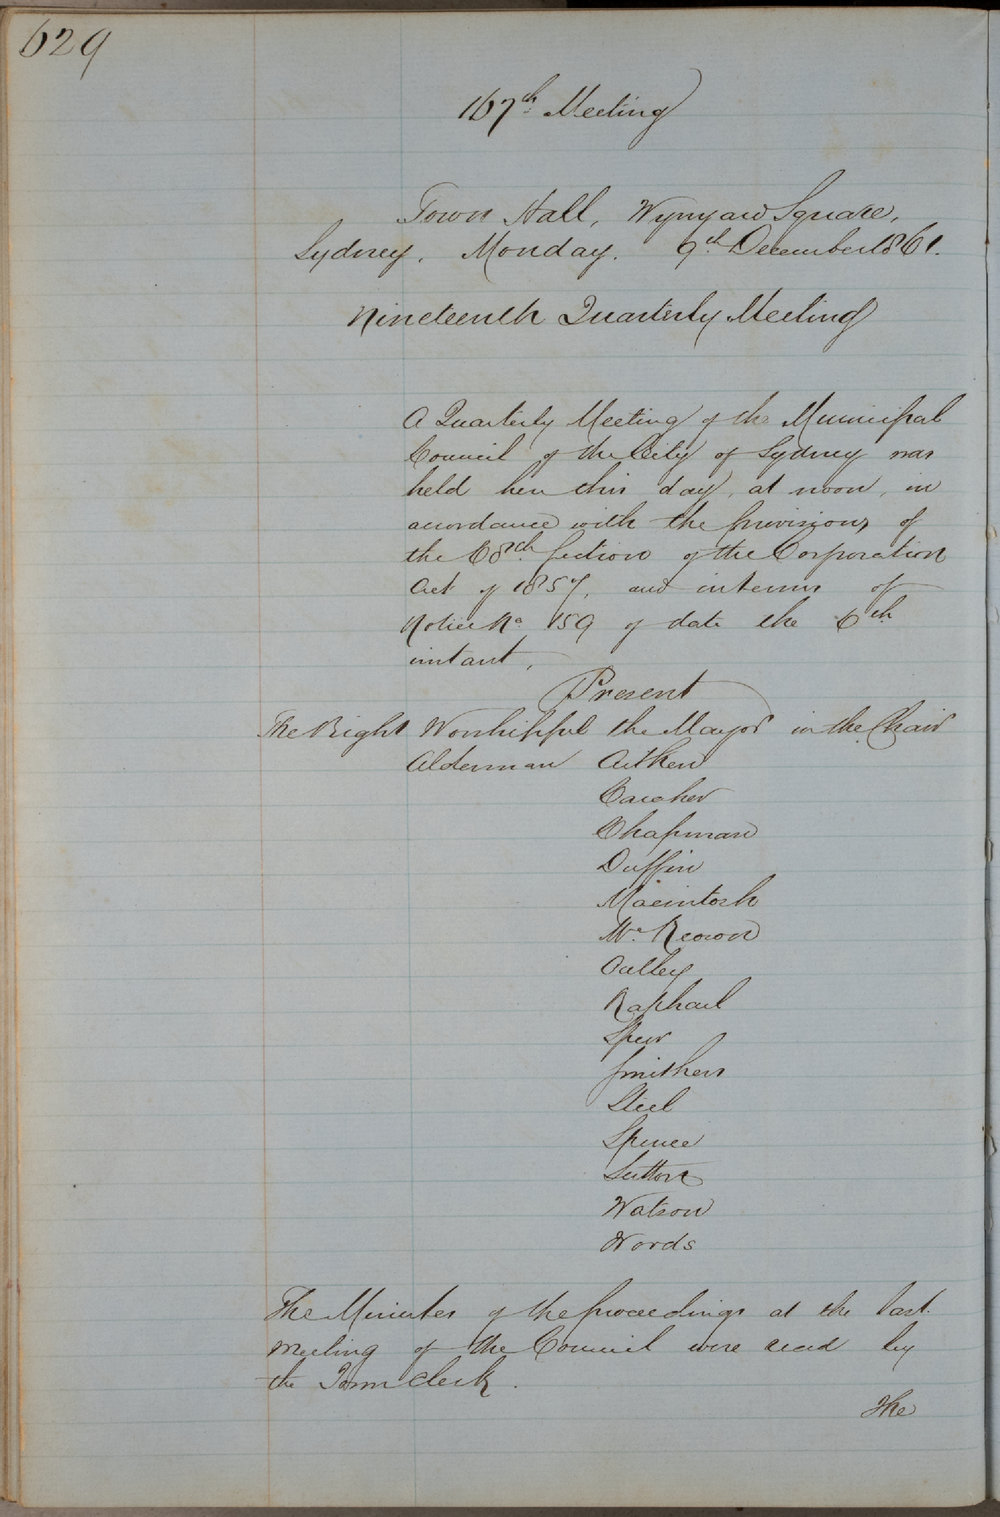 629
167th Meeting
Town Hall, Wynyard Square,
Sydney, Monday, 9th December 1861.
Nineteenth Quarterly Meeting
A Quarterly Meeting of the Municipal
Council of the City of Sydney was
held here this day, at noon, in
accordance with the provisions of
the 68th Section of the Corporation
Act of 1857, and in terms of
Notice No. 159 of date the 6th
instant.
Present
The Right Worshipful the Mayor in the Chair
Alderman Aitken
Caraher
Chapman
Duffin
Macintosh
Mc. Keown
Oatley
Raphael
Speer
Smithers
Steel
Spence
Sutton
Watson
Woods
The Minutes of the proceedings at the last
meeting of the Council were read by
the Town Clerk.
The